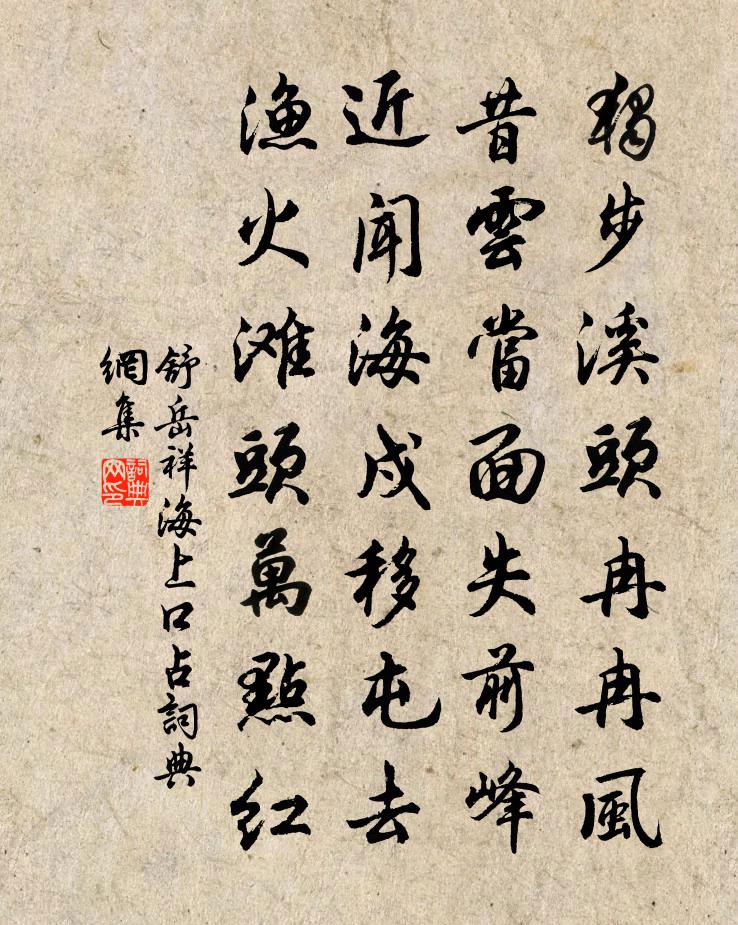 獨步溪頭冉冉風
昔雲當面失前峰
近聞海戍移屯去
漁火滩頭萬點红
舒岳祥海上口占詞典
網集
詞典
网印